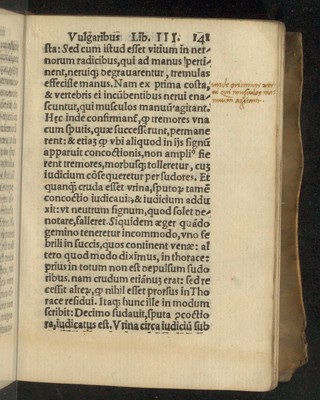 Vulgaribus Lib. III. 141
sta: Sed cum istud esset vitium in ner-
norum radicibus, qui ad manus ꝑerti-
nent, neruiq; degrauarentur, tremulas
effecisse manus. Nam ex prima costa,
& vertebris ei incubentibus nerui ena-
scuntur, qui musculos manuũ agitant.
Hęc inde confirmant, ꝙ tremores vna
cum sputis, quæ successerunt, permane
rent: & etiaʒ ꝙ vbi aliquod in ijs signũ
apparuit concoctionis, non ampliꝰ fie
rent tremores, morbusq; tolleretur, cuꝫ
iudicium cõsequeretur per sudores. Et
quanqꝫ cruda esset vrina, sputoꝝ tamẽ
concoctio iudicauit, & iudicium addu
xit: vt neutrum signum, quod solet de-
notare, falleret. Siquidem æger quãdo
gemino teneretur incommodo, vno fe
brili in succis, quos continent venæ: al
tero quod modo diximus, in thorace:
prius in totum non est depulsum sudo
ribus. nam crudum etiãnũ erat: sed re
cessit alteꝝ, ꝙ nihil esset prorsus in Tho
race residui. Itaqꝫ hunc ille in modum
scribit: Decimo sudauit, sputa ꝑcoctio
ra, iudicatus est. Vrina circa iudiciũ sub